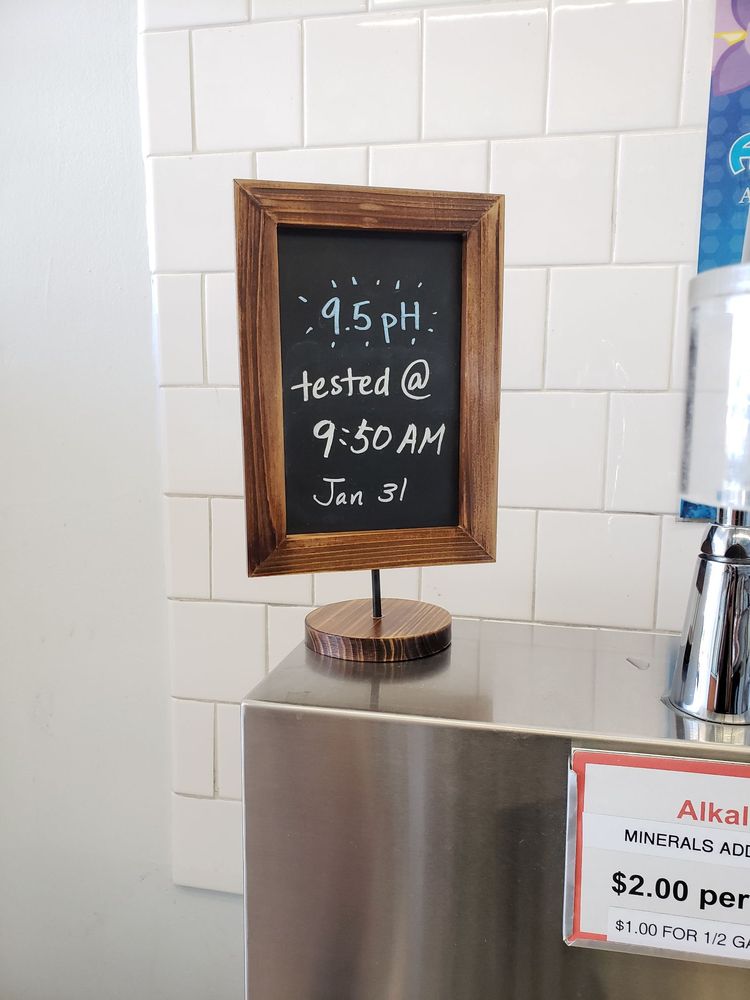 9.5 pH
tested @
9:50 AM
Jan 31
Alkal
MINERALS ADD
$2.00 per
$1.00 FOR 1/2 GA